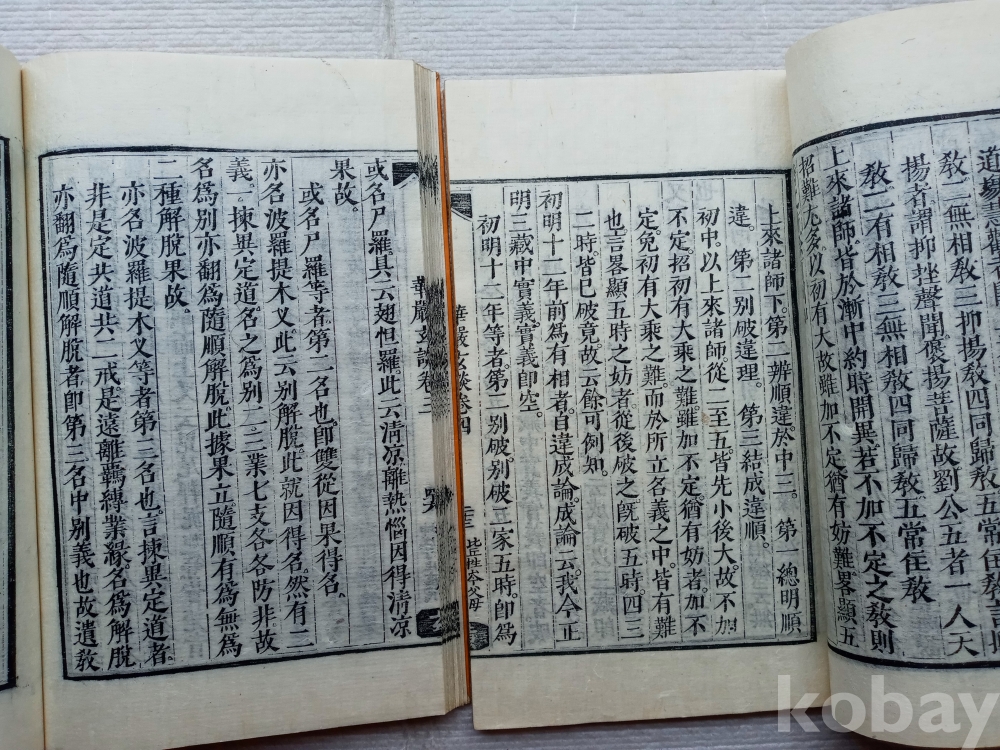 教二無相教三抑揚教四同歸教五常住教言
揚者謂抑挫聲聞褒揚菩薩故劉公五者一人天
教二有相教三無相教四同歸教五常住教
上來諸師皆於漸中約時開異若不加不定之教則
招難尤多以初有大故雖加不定猶有妨難畧顯五
上來諸師下。第二辨順違。於中三。　第一總明順
違。　第二別破違理。　第三結成違順。
初中。以上來諸師從二至五。皆先小後大故。不加
不定。招初有大乘之難。雖加不定。猶有妨者。加不
定。免初有大乘之難。而於所立名義之中。皆有難
也。言畧顯五時之妨者。從後破之。旣破五時。四三
二時。皆已破竟。故云餘可例知。
初明十二年前爲有相者。自違成論。成論云我今正
明三藏中實義。實義卽空。
初明十二年等者。第二別破。別破三家五時。卽爲
華嚴玄談卷四
比丘性本父母
或名尸羅具云翅怛羅此云清凉離熱惱因得清凉
果故。
或名尸羅等者。第二名也。卽雙從因果得名。
亦名波羅提木叉。此云別解脫。此就因得名。然有二
義。一揀異定道。名之爲別。二三業七支各各防非故
名爲別。亦翻爲隨順解脫。此據果立。隨順有爲無爲
二種解脫果故。
亦名波羅提木叉等者。第三名也。言揀異定道者。
非是定共道共。二戒是遠離羈縛業緣。名爲解脫
亦翻爲隨順解脫者。卽第三名中別義也。故遺教
華嚴玄談卷三